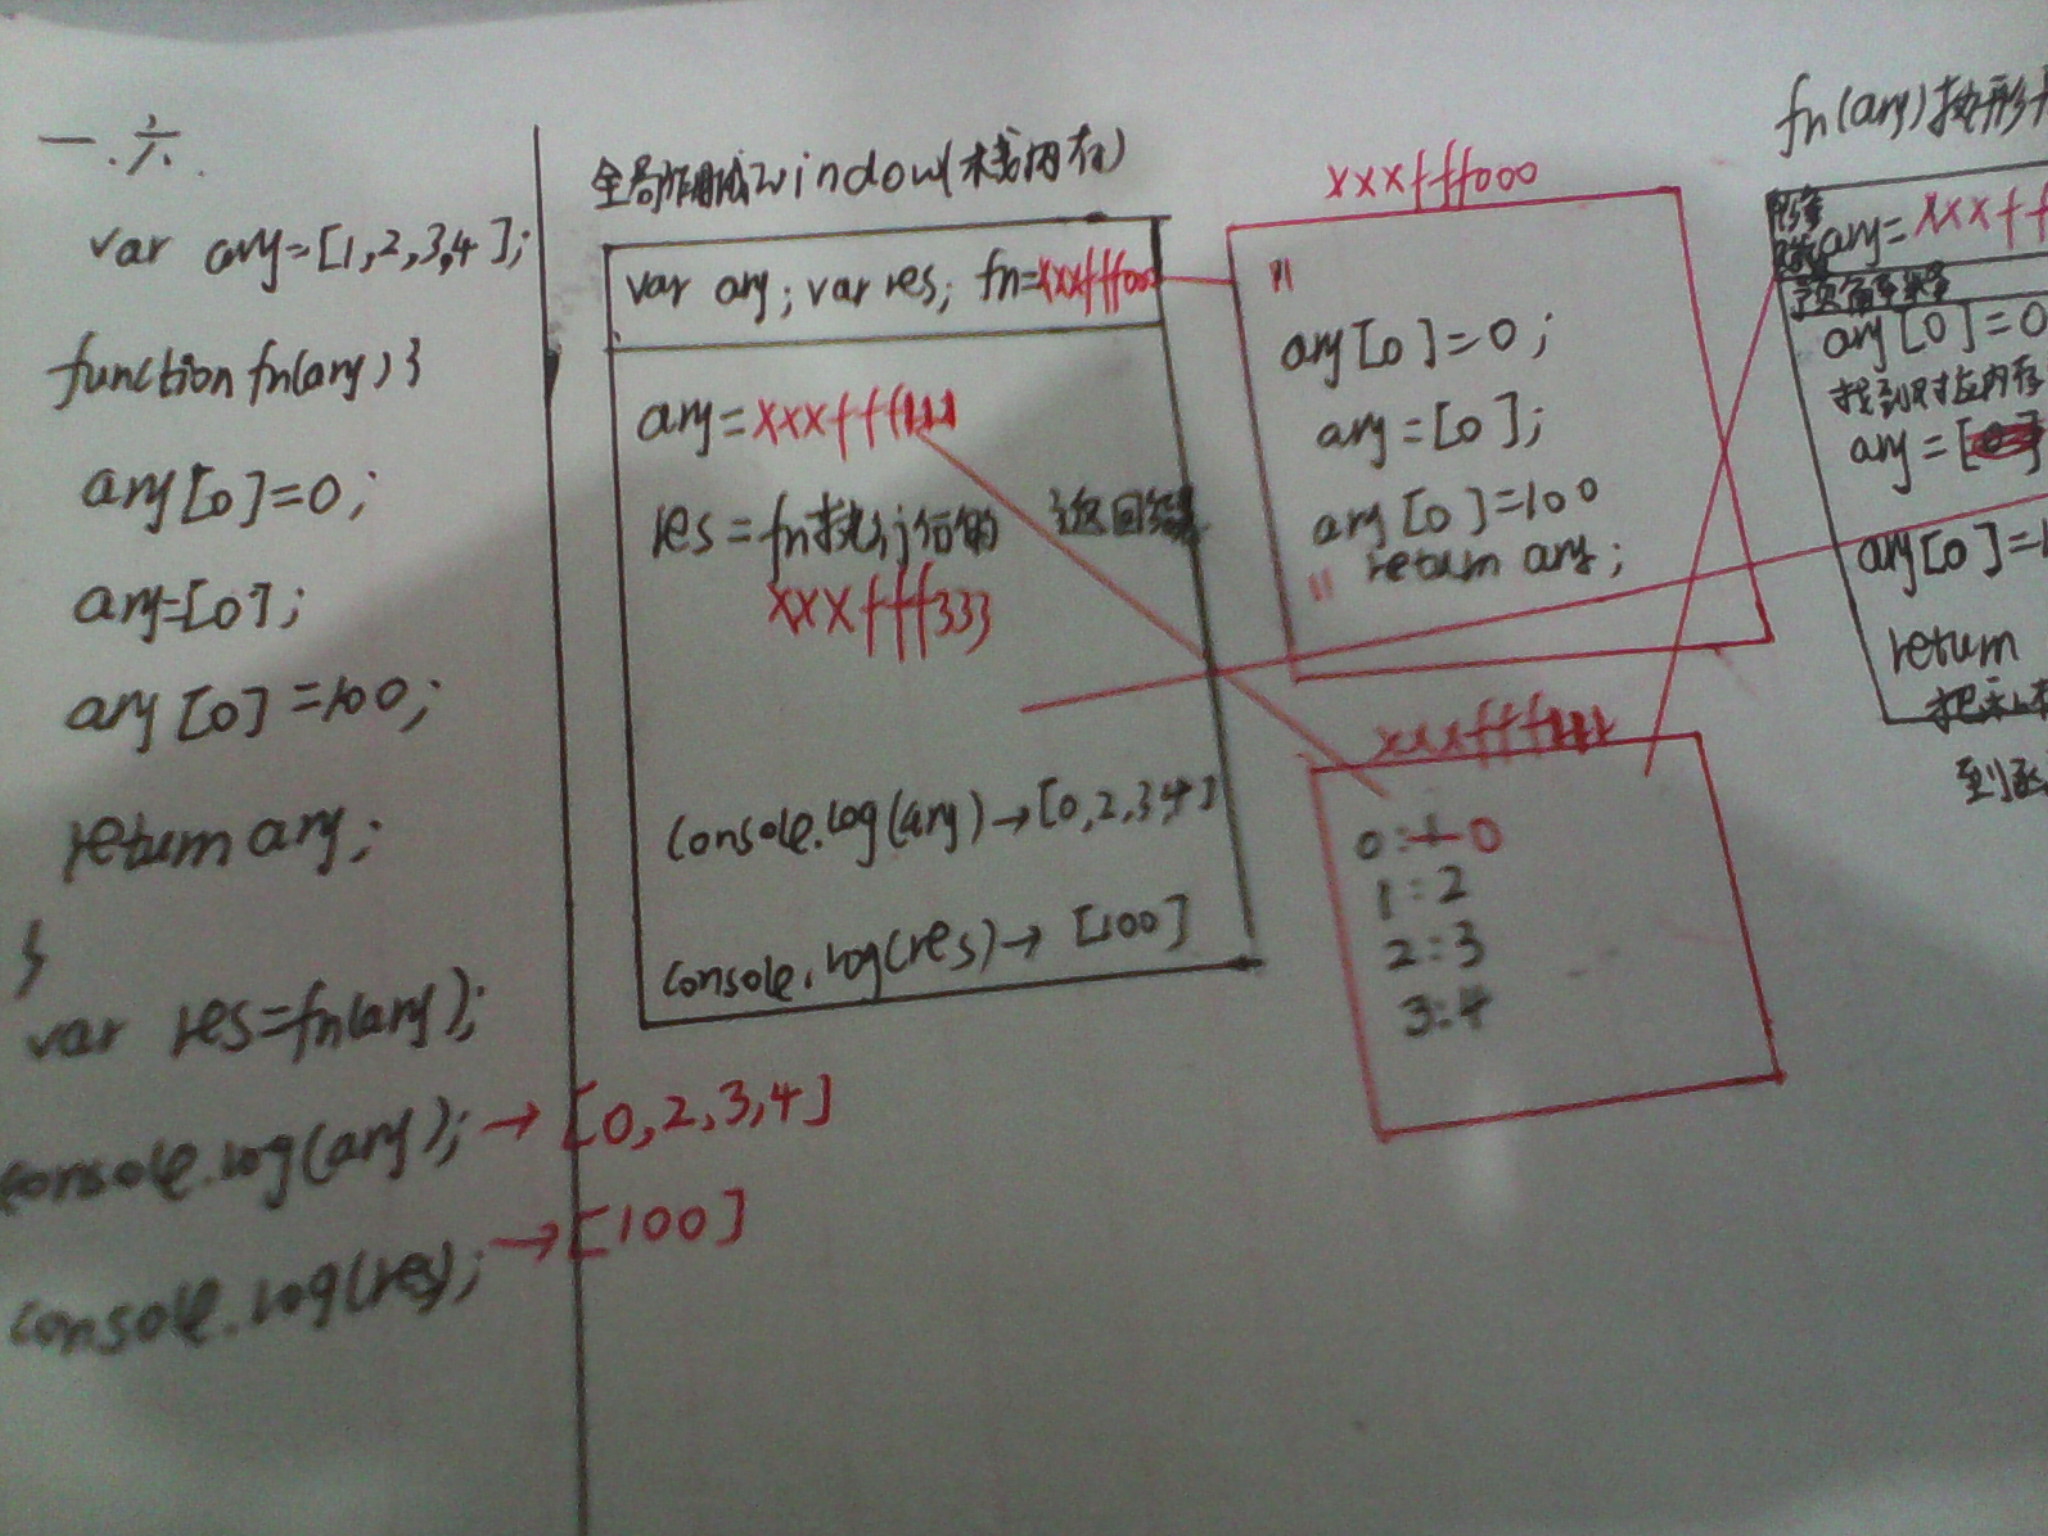 一.六.
var ary=[1,2,3,4];
function fn(ary) }
ary[0]=0;
ary=[0];
ary[0]=100;
return ary;
}
var res=fn(ary);
console.log(ary); → [0,2,3,4]
console.log(res); → [100]
全局作用域window(栈内存)
var ary; var res; fn=xxxfff000
ary=xxxfff111
res=fn执行后的 返回结果
xxxfff333
console.log(ary)→[0,2,3,4]
console.log(res)→ [100]
xxxfff000
"
ary[0]=0;
ary=[0];
ary[0]=100
return ary;
"
xxxfff111
0:1 0
1:2
2:3
3:4
fn(ary)执形
形参
赋值ary=xxxff
预备
ary[0]=0
找到对应内存
ary=[0]
ary[0]=1
return
把
到